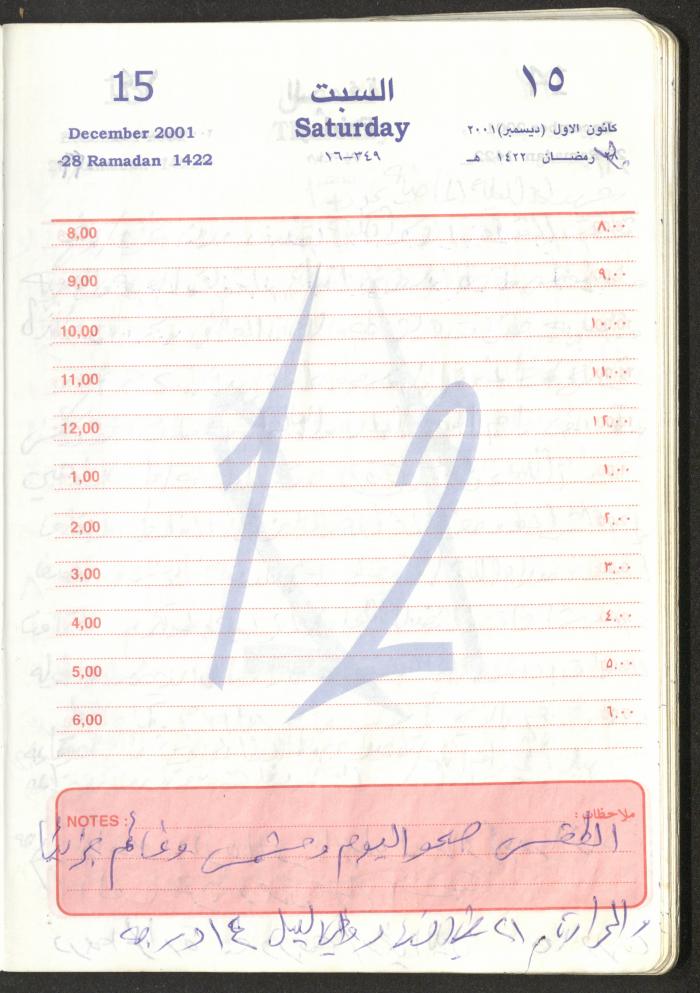 15 السبت ١٥
December 2001 Saturday كانون الاول (ديسمبر) ٢٠٠١
28 Ramadan 1422 ١٦-٣٤٩ رمضان ١٤٢٢ هـ
8,00 ٨,٠٠
9,00 ٩,٠٠
10,00 ١٠,٠٠
11,00 ١١,٠٠
12,00 ١٢,٠٠
1,00 ١,٠٠
2,00 ٢,٠٠
3,00 ٣,٠٠
4,00 ٤,٠٠
5,00 ٥,٠٠
6,00 ٦,٠٠
12
NOTES : ملاحظات :
الطقس صحو اليوم ومشمس وغائم جزئيا
والحرارة ٢١ النهار الليل ١٤ درجه